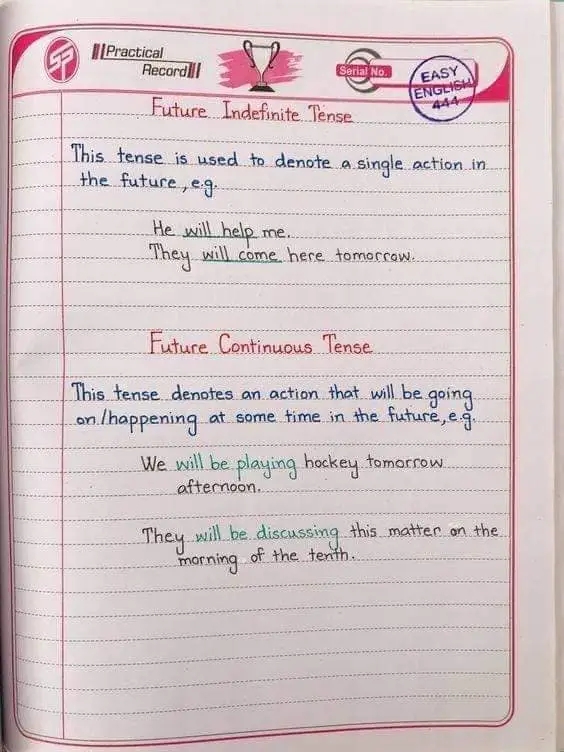 Practical
Record
Serial No.
EASY
ENGLISH
444
Future Indefinite Tense
This tense is used to denote a single action in
the future, e.g.
He will help me.
They will come here tomorrow.
Future Continuous Tense
This tense denotes an action that will be going
on/happening at some time in the future, e.g.
We will be playing hockey tomorrow
afternoon.
They will be discussing this matter on the
morning of the tenth.